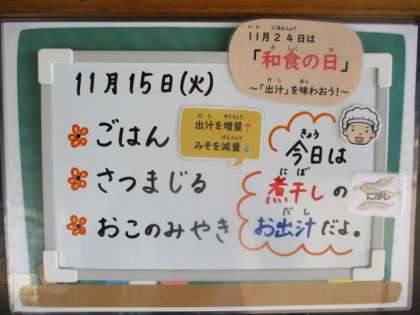 11月24日は
「和食の日」
～「出汁」を味わおう！～
11月15日(火)
ごはん
さつまじる
おこのみやき
出汁を増量↑
みそを減量↓
今日は
煮干しの
お出汁だよ。
にぼし